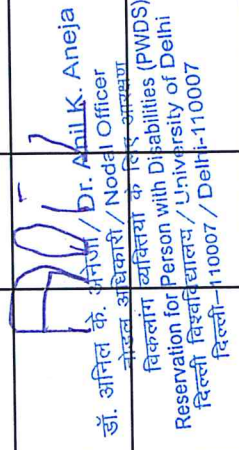 डॉ. अनिल के. अनेजा / Dr. Anil K. Aneja
नोडल अधिकारी / Nodal Officer
विकलांग व्यक्तियों के लिए आरक्षण
Reservation for Person with Disabilities (PWDS)
दिल्ली विश्वविद्यालय / University of Delhi
दिल्ली-110007 / Delhi-110007